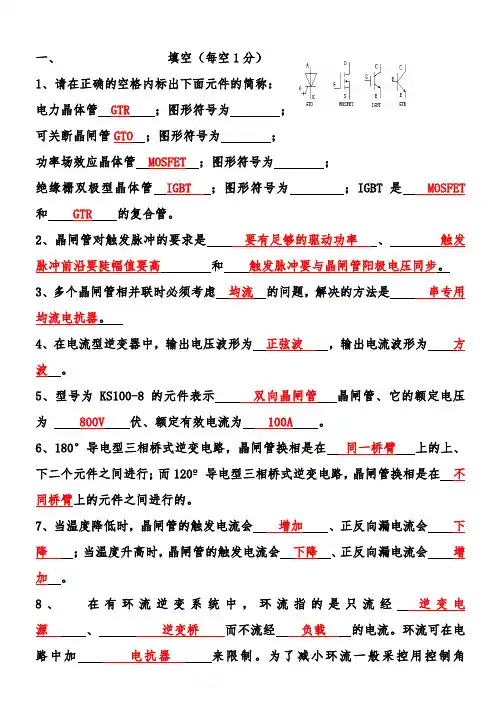 一、 填空（每空1分）
A D C C
G G G B
K S E E
GTO MOSFET IGBT GTR
1、请在正确的空格内标出下面元件的简称：
电力晶体管 GTR ；图形符号为 ；
可关断晶闸管GTO ；图形符号为 ；
功率场效应晶体管 MOSFET ；图形符号为 ；
绝缘栅双极型晶体管 IGBT ；图形符号为 ；IGBT 是 MOSFET
和 GTR 的复合管。
2、晶闸管对触发脉冲的要求是 要有足够的驱动功率 、 触发
脉冲前沿要陡幅值要高 和 触发脉冲要与晶闸管阳极电压同步。
3、多个晶闸管相并联时必须考虑 均流 的问题，解决的方法是 串专用
均流电抗器。
4、在电流型逆变器中，输出电压波形为 正弦波 ，输出电流波形为 方
波 。
5、型号为 KS100-8 的元件表示 双向晶闸管 晶闸管、它的额定电压
为 800V 伏、额定有效电流为 100A 。
6、180°导电型三相桥式逆变电路，晶闸管换相是在 同一桥臂 上的上、
下二个元件之间进行；而120º 导电型三相桥式逆变电路，晶闸管换相是在 不
同桥臂上的元件之间进行的。
7、当温度降低时，晶闸管的触发电流会 增加 、正反向漏电流会 下
降 ；当温度升高时，晶闸管的触发电流会 下降 、正反向漏电流会 增
加 。
8、 在有环流逆变系统中，环流指的是只流经 逆变电
源 、 逆变桥 而不流经 负载 的电流。环流可在电
路中加 电抗器 来限制。为了减小环流一般采控用控制角